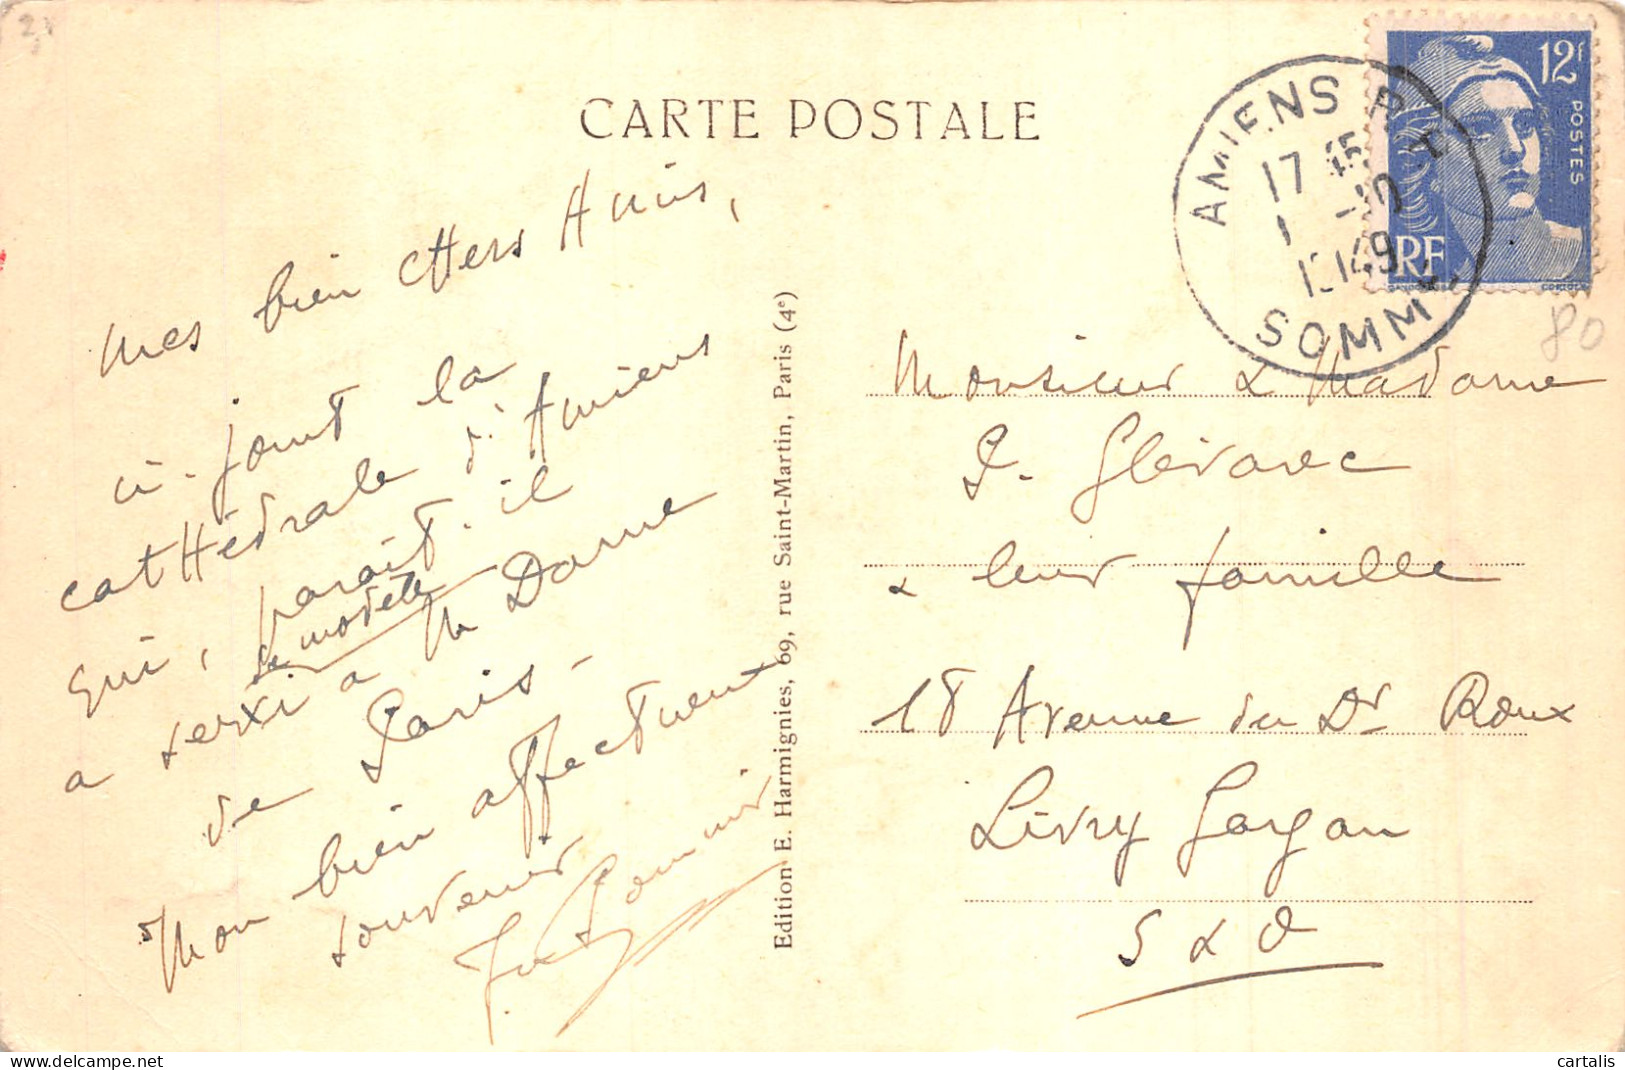 CARTE POSTALE
Mes bien chers Amis,
ci-joint la
cathédrale d'Amiens
qui, paraît-il
de modèle
a servi à N Dame
de Paris -
Mon bien affectueux
souvenir
Edition E. Harmignies, 69, rue Saint-Martin, Paris (4e)
AMIENS R
17
-10
1949
SOMME
12f
POSTES
RF
80
Monsieur & Madame
Glévarec
& leur famille
18 Avenue du Dr Roux
Livry Gargan
S & O
cartalis